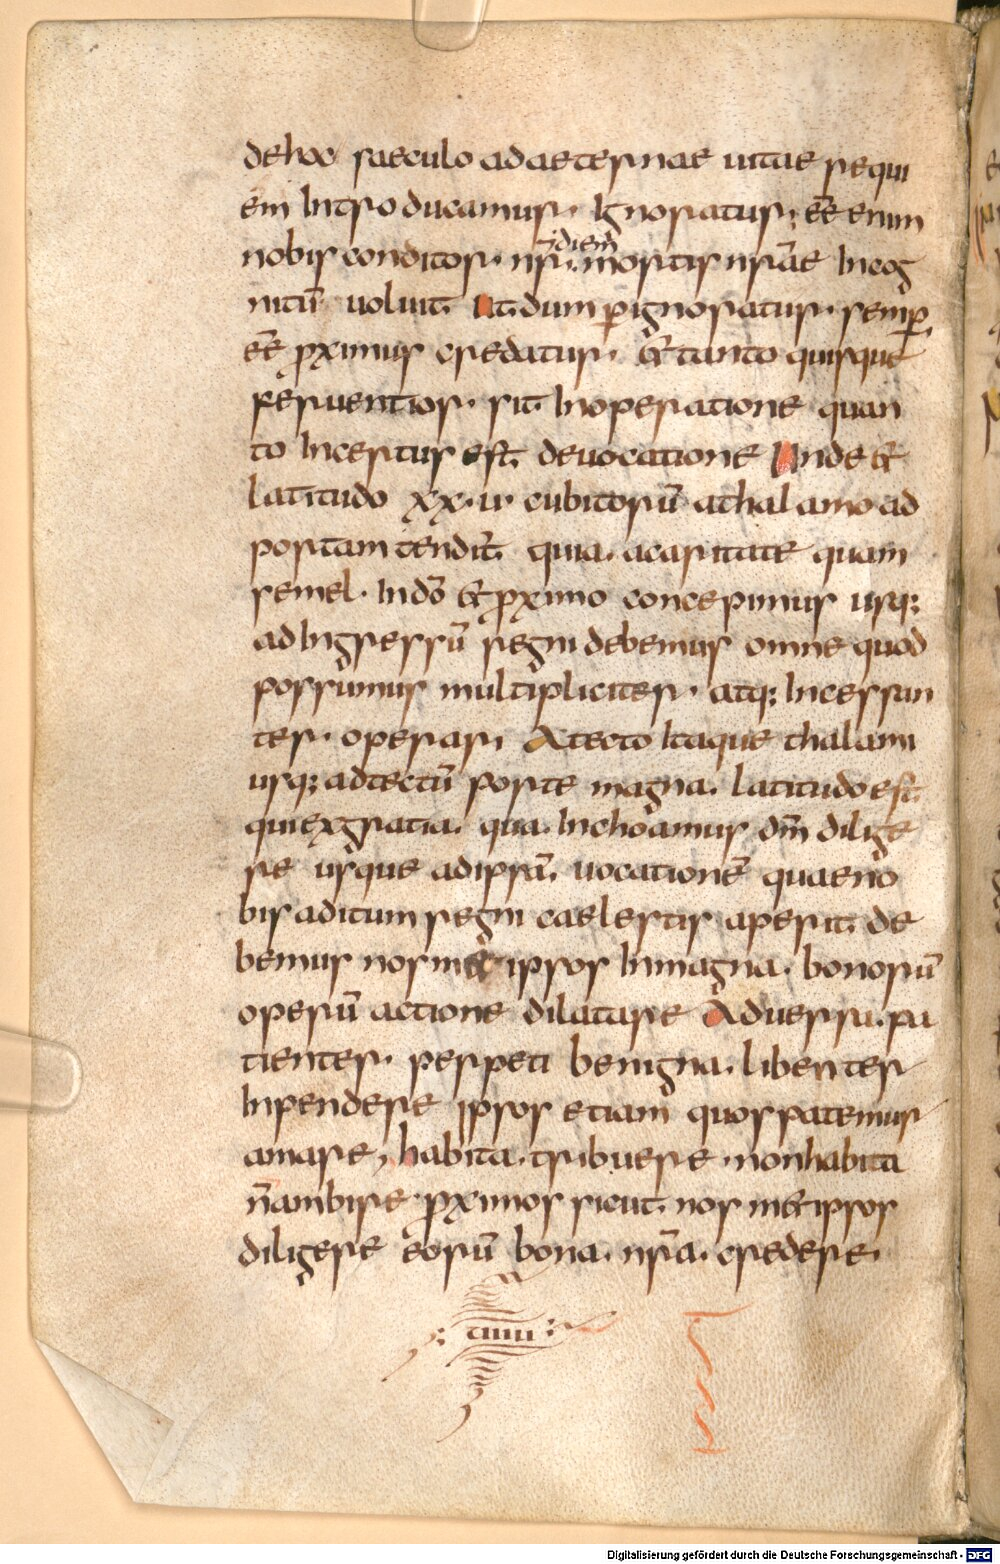 dehoc saeculo ad aeternae uitae requi
em Introducamur. Ignoratur; eē enim
nobis conditor. nr̄. diem mortis nrāe Incog
nitū uoluit. Ut. dum p̱ignoratur. semp̱
eē p̱ximus credatur. & tanto quisque
feruentior. sit. Inoperatione quan
to Incertus est. deuocatione Unde &
latitudo xx. u. cubitorū athalamo ad
portam tendit. quia. acaritate quam
semel. Indō & p̱ximo concepimus usq;
ad Ingressū regni debemus omne quod
possumus multipliciter. atq; Incessan
ter. operari Atecto Itaque thalami
usq; adtectū porte magna. latitudo est.
quiexgratia. qua. Inchoamus dm̄ dilige
re usque adipsā. uocationē quaeno
bis aditum regni caelestis aperit. de
bemus nosm& ipsos Inmagna. bonorū
operū actione dilatare Aduersa. pa
tienter. perpeti benigna. libenter
Inpendere Ipsos etiam quospatemur
amare, habita. tribuere. nonhabita
n̄ambire. p̱ximos sicut. nos m&ipsos
diligere eorū bona. nrā. credere.
:; cuiii :;